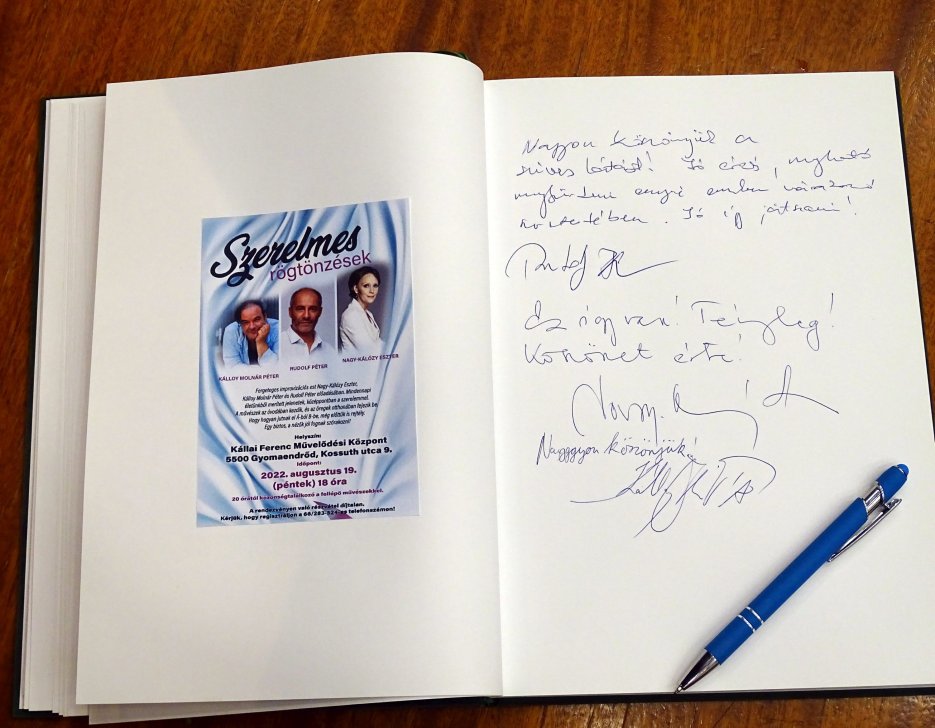 Szerelmes
rögtönzések
KÁLLOY MOLNÁR PÉTER
RUDOLF PÉTER
NAGY-KÁLÓZY ESZTER
Fergeteges improvizációs est Nagy-Kálózy Eszter,
Kálloy Molnár Péter és Rudolf Péter előadásában. Mindennapi
életünkből merített jelenetek, középpontban a szerelemmel.
A művészek az óvodában kezdik, és az öregek otthonában fejezik be.
Hogy hogyan jutnak el A-ból B-be, még előttük is rejtély.
Egy biztos, a nézők jól fognak szórakozni!
Helyszín:
Kállai Ferenc Művelődési Központ
5500 Gyomaendrőd, Kossuth utca 9.
Időpont:
2022. augusztus 19.
(péntek) 18 óra
20 órától közönségtalálkozó a fellépő művészekkel.
A rendezvényen való részvétel díjtalan.
Kérjük, hogy regisztráljon a 66/283-524-es telefonszámon!
Nagyon köszönjük a
szíves látást! Jó érzés,
ennyi ember
Jó így játszani!
Rudolf
Ez így van! Tényleg!
Köszönet érte!
Nagggyon köszönjük!